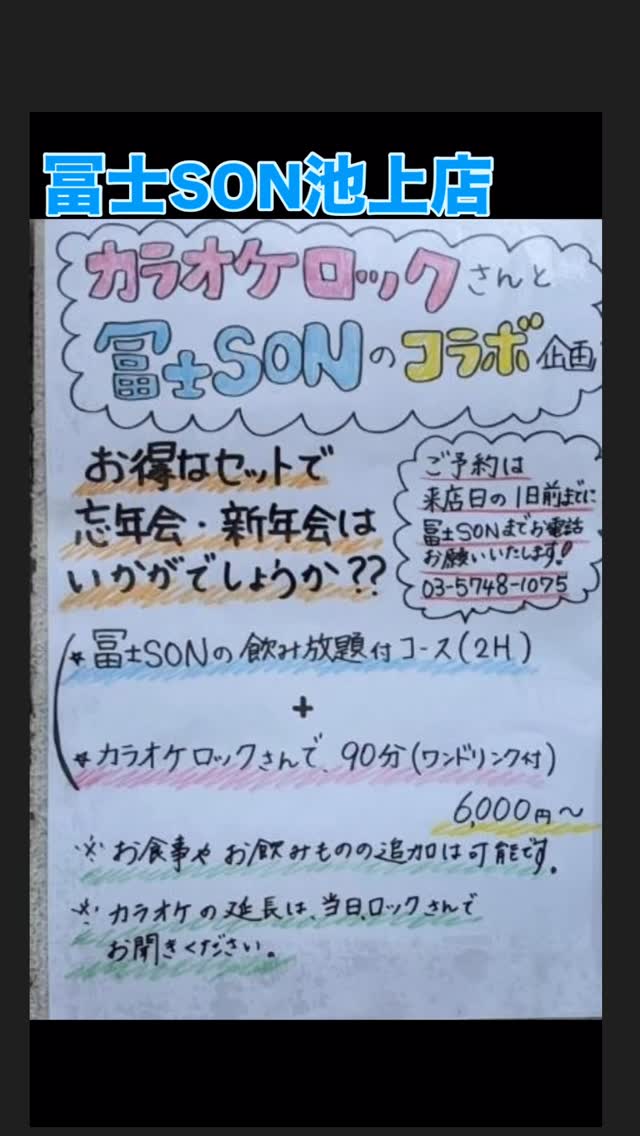 冨士SON池上店
カラオケロックさんと
冨士SONのコラボ企画
お得なセットで
忘年会・新年会は
いかがでしょうか??
ご予約は
来店日の1日前までに
冨士SONまでお電話
お願いいたします!
03-5748-1075
★冨士SONの飲み放題付コース(2H)
+
★カラオケロックさんで、90分(ワンドリンク付)
6,000円〜
※お食事やお飲みものの追加は可能です。
※カラオケの延長は、当日、ロックさんで
お聞きください。